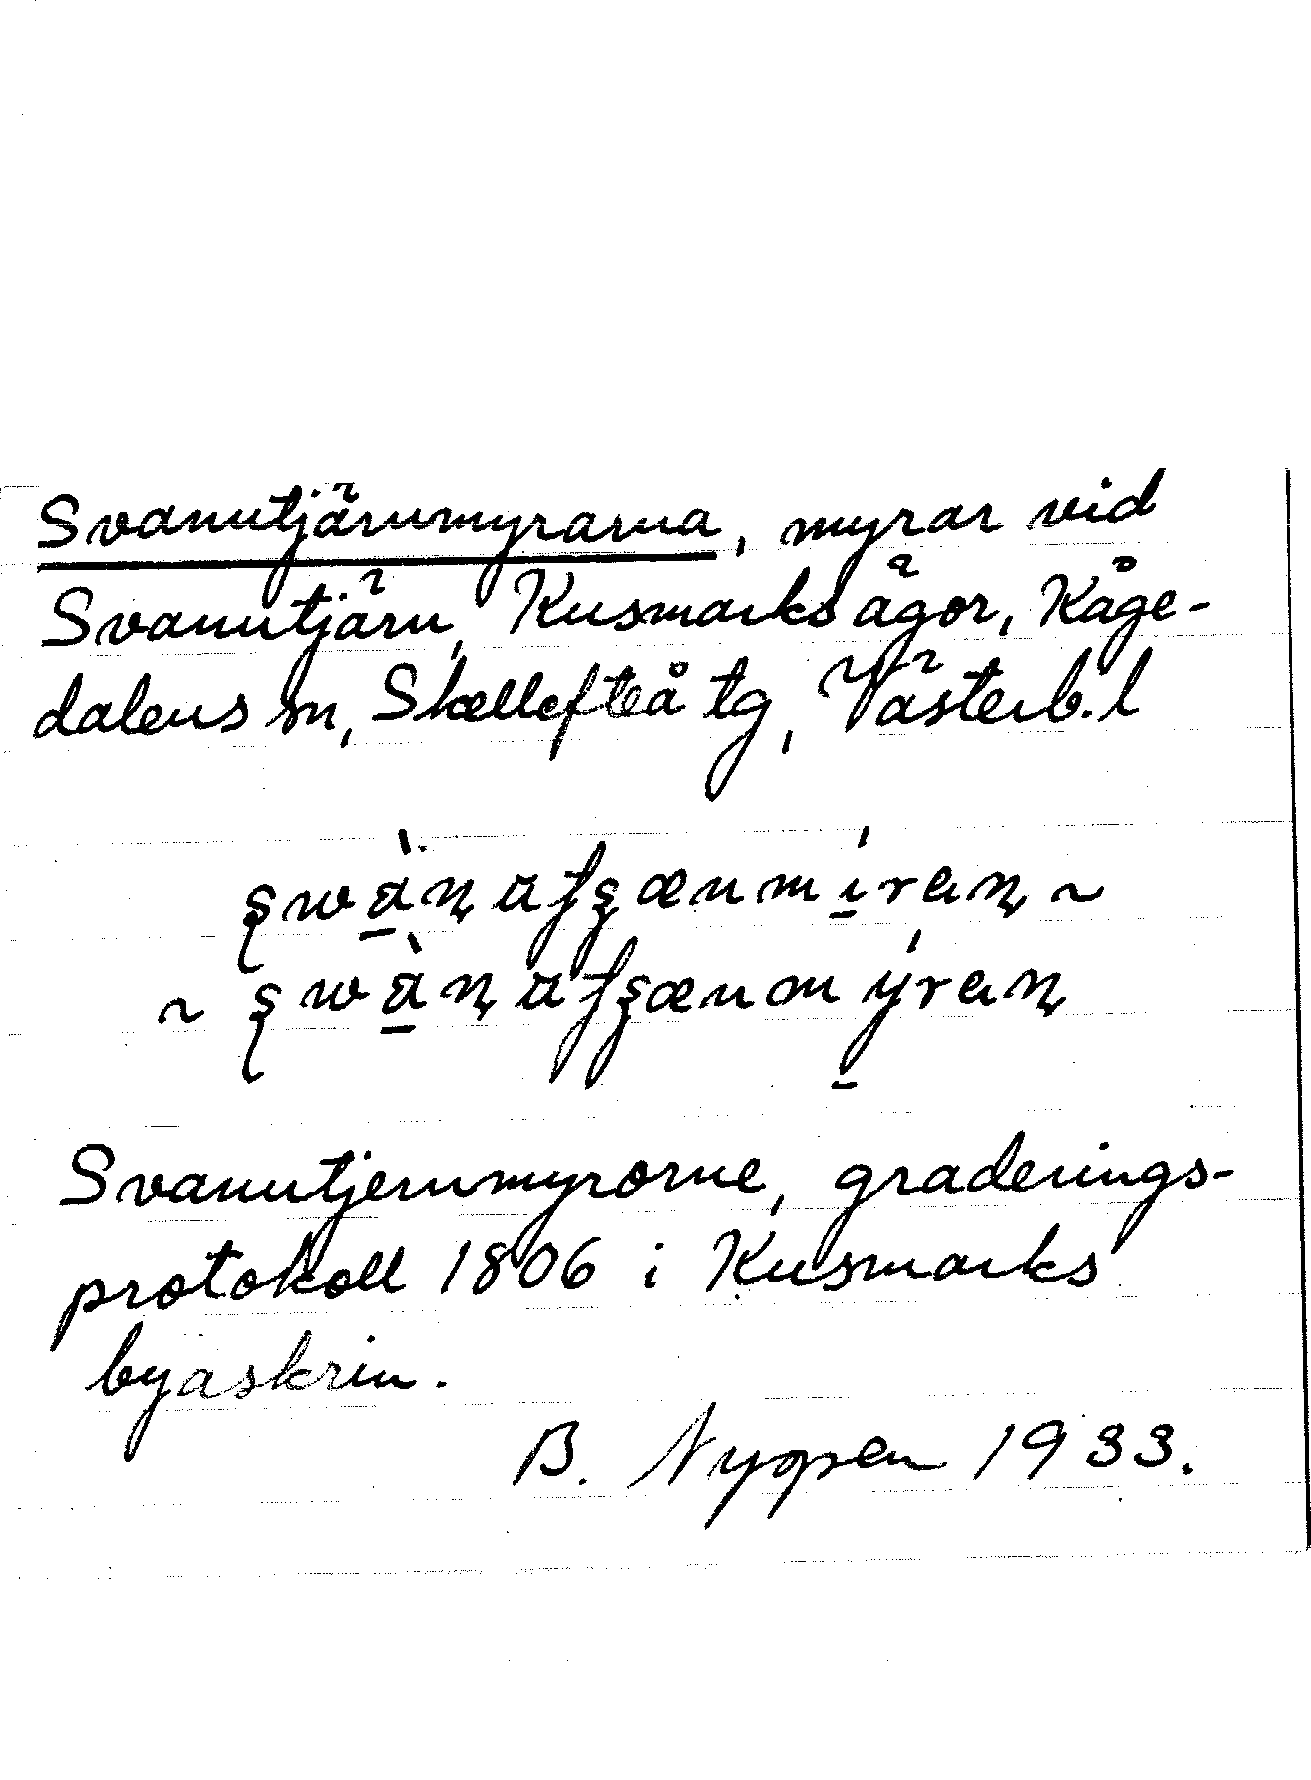 Svanutjärnmyrarna, myrar vid
Svanutjärn, Kusmarks ägor, Kåge-
dalens sn, Skellefteå tg, Västerb. l
Svanutjernmyrorne, graderings-
protokoll 1806 i Kusmarks
byaskrin.
B. Nygren 1933.